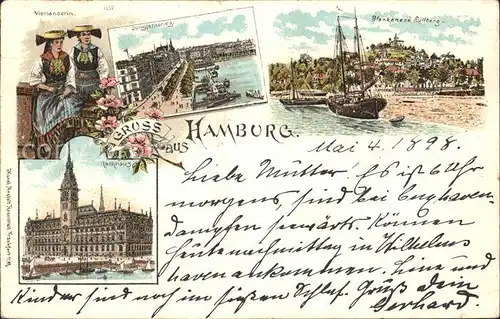 Vierländerin.
Jungfernstieg
Blankenese Süllberg.
GRUSS
AUS
HAMBURG.
Rathhaus
Mai 4. 1898.
Liebe Mutter! Es ist 6 Uhr
morgens, sind bei Cuxhaven,
dampfen seewärts. Können
heute nachmittag in Wilhelms
haven ankommen. Line und
Kinder sind noch im süßen Schlaf. Gruß dein
Gerhard.